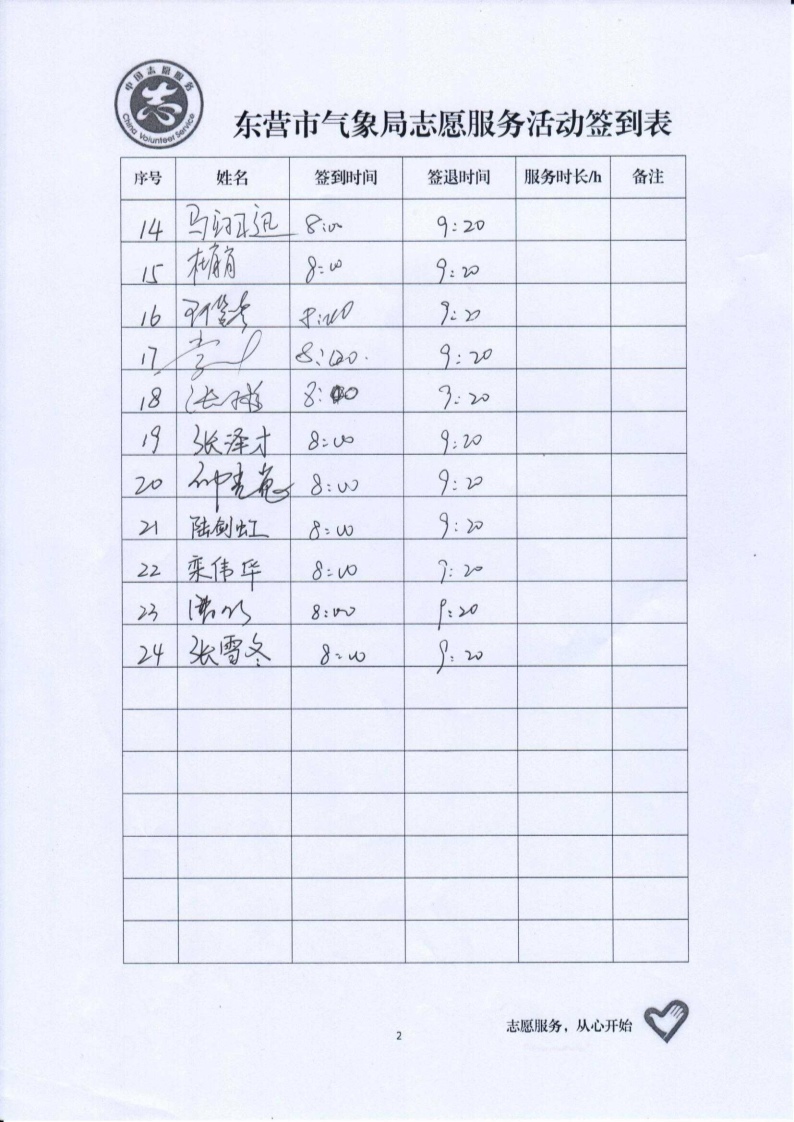 中国志愿服务
China Volunteer Service
东营市气象局志愿服务活动签到表
序号 姓名 签到时间 签退时间 服务时长/h 备注
14 8:00 9:20
15 8:00 9:20
16 9:20
17 8:00. 9:20
18 8:00 9:20
19 张泽才 8:00 9:20
20 8:00 9:20
21 陆剑虹 8:00 9:20
22 栾伟华 8:00 9:20
23 8:00 9:20
24 张雪冬 8:00 9:20
志愿服务，从心开始
2